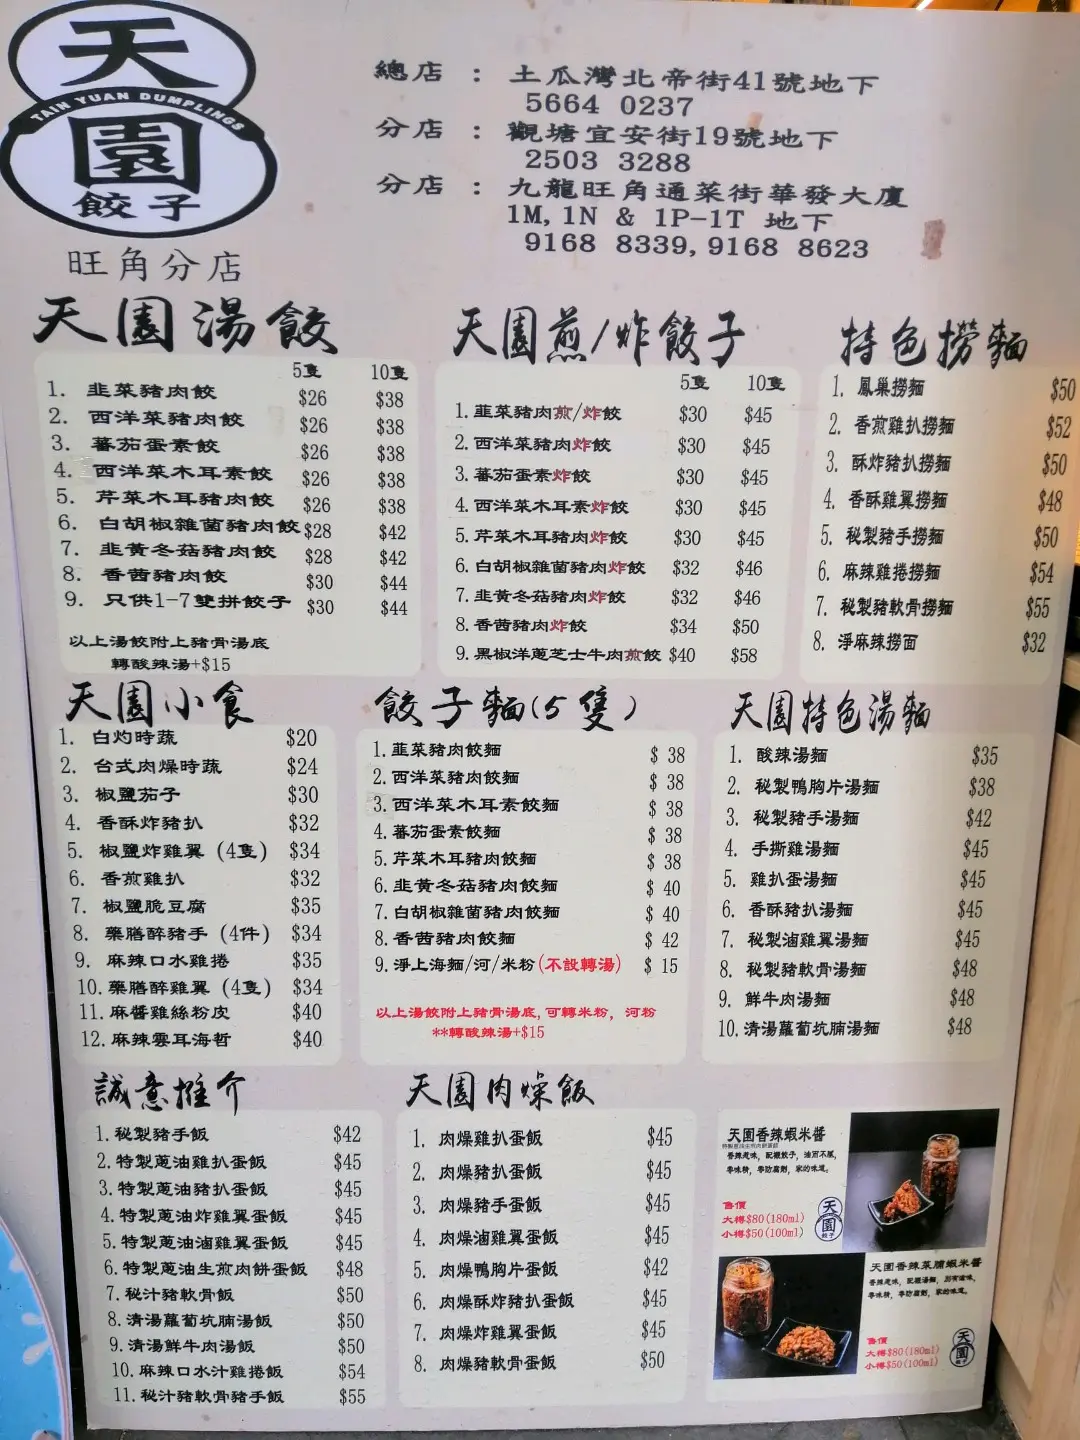 天園
TAIN YUAN DUMPLINGS
餃子
旺角分店
總店 : 土瓜灣北帝街41號地下
5664 0237
分店 : 觀塘宜安街19號地下
2503 3288
分店 : 九龍旺角通菜街華發大廈
1M, 1N & 1P-1T 地下
9168 8339, 9168 8623
天園湯餃
5隻 10隻
1. 韭菜豬肉餃 $26 $38
2. 西洋菜豬肉餃 $26 $38
3. 蕃茄蛋素餃 $26 $38
4. 西洋菜木耳素餃 $26 $38
5. 芹菜木耳豬肉餃 $26 $38
6. 白胡椒雜菌豬肉餃 $28 $42
7. 韭黃冬菇豬肉餃 $28 $42
8. 香茜豬肉餃 $30 $44
9. 只供1-7雙拼餃子 $30 $44
以上湯餃附上豬骨湯底
轉酸辣湯+$15
天園煎/炸餃子
5隻 10隻
1. 韮菜豬肉煎/炸餃 $30 $45
2. 西洋菜豬肉炸餃 $30 $45
3. 蕃茄蛋素炸餃 $30 $45
4. 西洋菜木耳素炸餃 $30 $45
5. 芹菜木耳豬肉炸餃 $30 $45
6. 白胡椒雜菌豬肉炸餃 $32 $46
7. 韭黃冬菇豬肉炸餃 $32 $46
8. 香茜豬肉炸餃 $34 $50
9. 黑椒洋蔥芝士牛肉煎餃 $40 $58
特色撈麵
1. 鳳巢撈麵 $50
2. 香煎雞扒撈麵 $52
3. 酥炸豬扒撈麵 $50
4. 香酥雞翼撈麵 $48
5. 秘製豬手撈麵 $50
6. 麻辣雞捲撈麵 $54
7. 秘製豬軟骨撈麵 $55
8. 淨麻辣撈面 $32
天園小食
1. 白灼時蔬 $20
2. 台式肉燥時蔬 $24
3. 椒鹽茄子 $30
4. 香酥炸豬扒 $32
5. 椒鹽炸雞翼 (4隻) $34
6. 香煎雞扒 $32
7. 椒鹽脆豆腐 $35
8. 藥膳醉豬手 (4件) $34
9. 麻辣口水雞捲 $35
10. 藥膳醉雞翼 (4隻) $34
11. 麻醬雞絲粉皮 $40
12. 麻辣雲耳海哲 $40
餃子麵(5隻)
1. 韮菜豬肉餃麵 $ 38
2. 西洋菜豬肉餃麵 $ 38
3. 西洋菜木耳素餃麵 $ 38
4. 蕃茄蛋素餃麵 $ 38
5. 芹菜木耳豬肉餃麵 $ 38
6. 韭黃冬菇豬肉餃麵 $ 40
7. 白胡椒雜菌豬肉餃麵 $ 40
8. 香茜豬肉餃麵 $ 42
9. 淨上海麵/河/米粉(不設轉湯) $ 15
以上湯餃附上豬骨湯底, 可轉米粉, 河粉
**轉酸辣湯+$15
天園特色湯麵
1. 酸辣湯麵 $35
2. 秘製鴨胸片湯麵 $38
3. 秘製豬手湯麵 $42
4. 手撕雞湯麵 $45
5. 雞扒蛋湯麵 $45
6. 香酥豬扒湯麵 $45
7. 秘製滷雞翼湯麵 $45
8. 秘製豬軟骨湯麵 $48
9. 鮮牛肉湯麵 $48
10. 清湯蘿蔔坑腩湯麵 $48
誠意推介
1. 秘製豬手飯 $42
2. 特製蔥油雞扒蛋飯 $45
3. 特製蔥油豬扒蛋飯 $45
4. 特製蔥油炸雞翼蛋飯 $45
5. 特製蔥油滷雞翼蛋飯 $45
6. 特製蔥油生煎肉餅蛋飯 $48
7. 秘汁豬軟骨飯 $50
8. 清湯蘿蔔坑腩湯飯 $50
9. 清湯鮮牛肉湯飯 $50
10. 麻辣口水汁雞捲飯 $54
11. 秘汁豬軟骨豬手飯 $55
天園肉燥飯
1. 肉燥雞扒蛋飯 $45
2. 肉燥豬扒蛋飯 $45
3. 肉燥豬手蛋飯 $45
4. 肉燥滷雞翼蛋飯 $45
5. 肉燥鴨胸片蛋飯 $42
6. 肉燥酥炸豬扒蛋飯 $45
7. 肉燥炸雞翼蛋飯 $45
8. 肉燥豬軟骨蛋飯 $50
天園香辣蝦米醬
香辣惹味, 配襯餃子, 油而不膩,
零味精, 零防腐劑, 家的味道。
售價
大樽$80(180ml)
小樽$50(100ml)
天園餃子
天園香辣菜脯蝦米醬
香辣惹味, 配襯湯麵, 別有滋味,
零味精, 零防腐劑, 家的味道。
售價
大樽$80(180ml)
小樽$50(100ml)
天園餃子